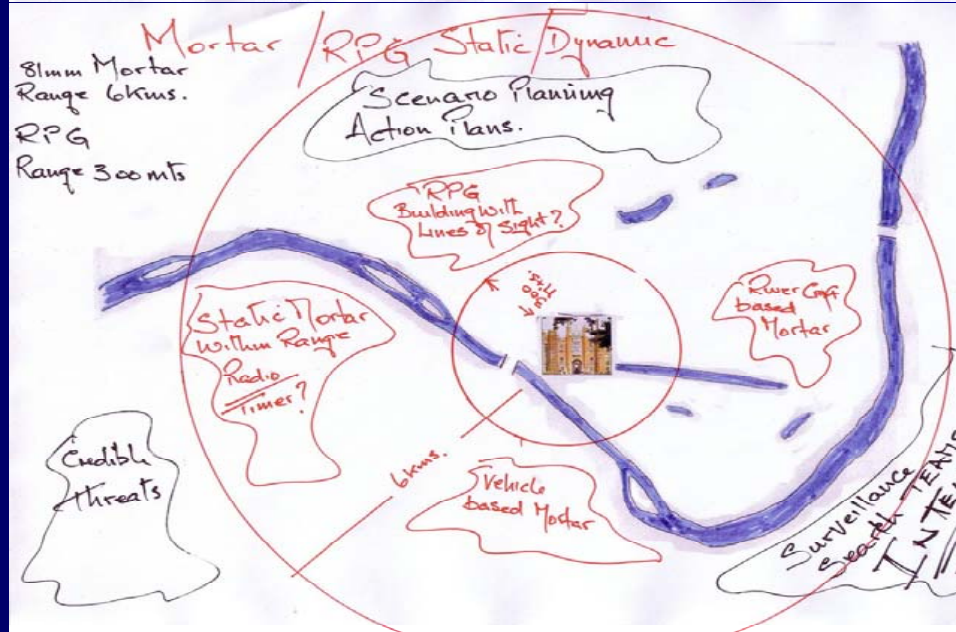 Mortar / RPG Static / Dynamic
81mm Mortar
Range 6kms.
RPG
Range 300mts
Scenario Planning
Action Plans.
RPG
Building with
Lines of Sight?
300
mts.
River Craft
based
Mortar
Static Mortar
Within Range
Radio
Timer?
6kms.
Credible
threats
Vehicle
based Mortar
Surveillance
Search TEAMS